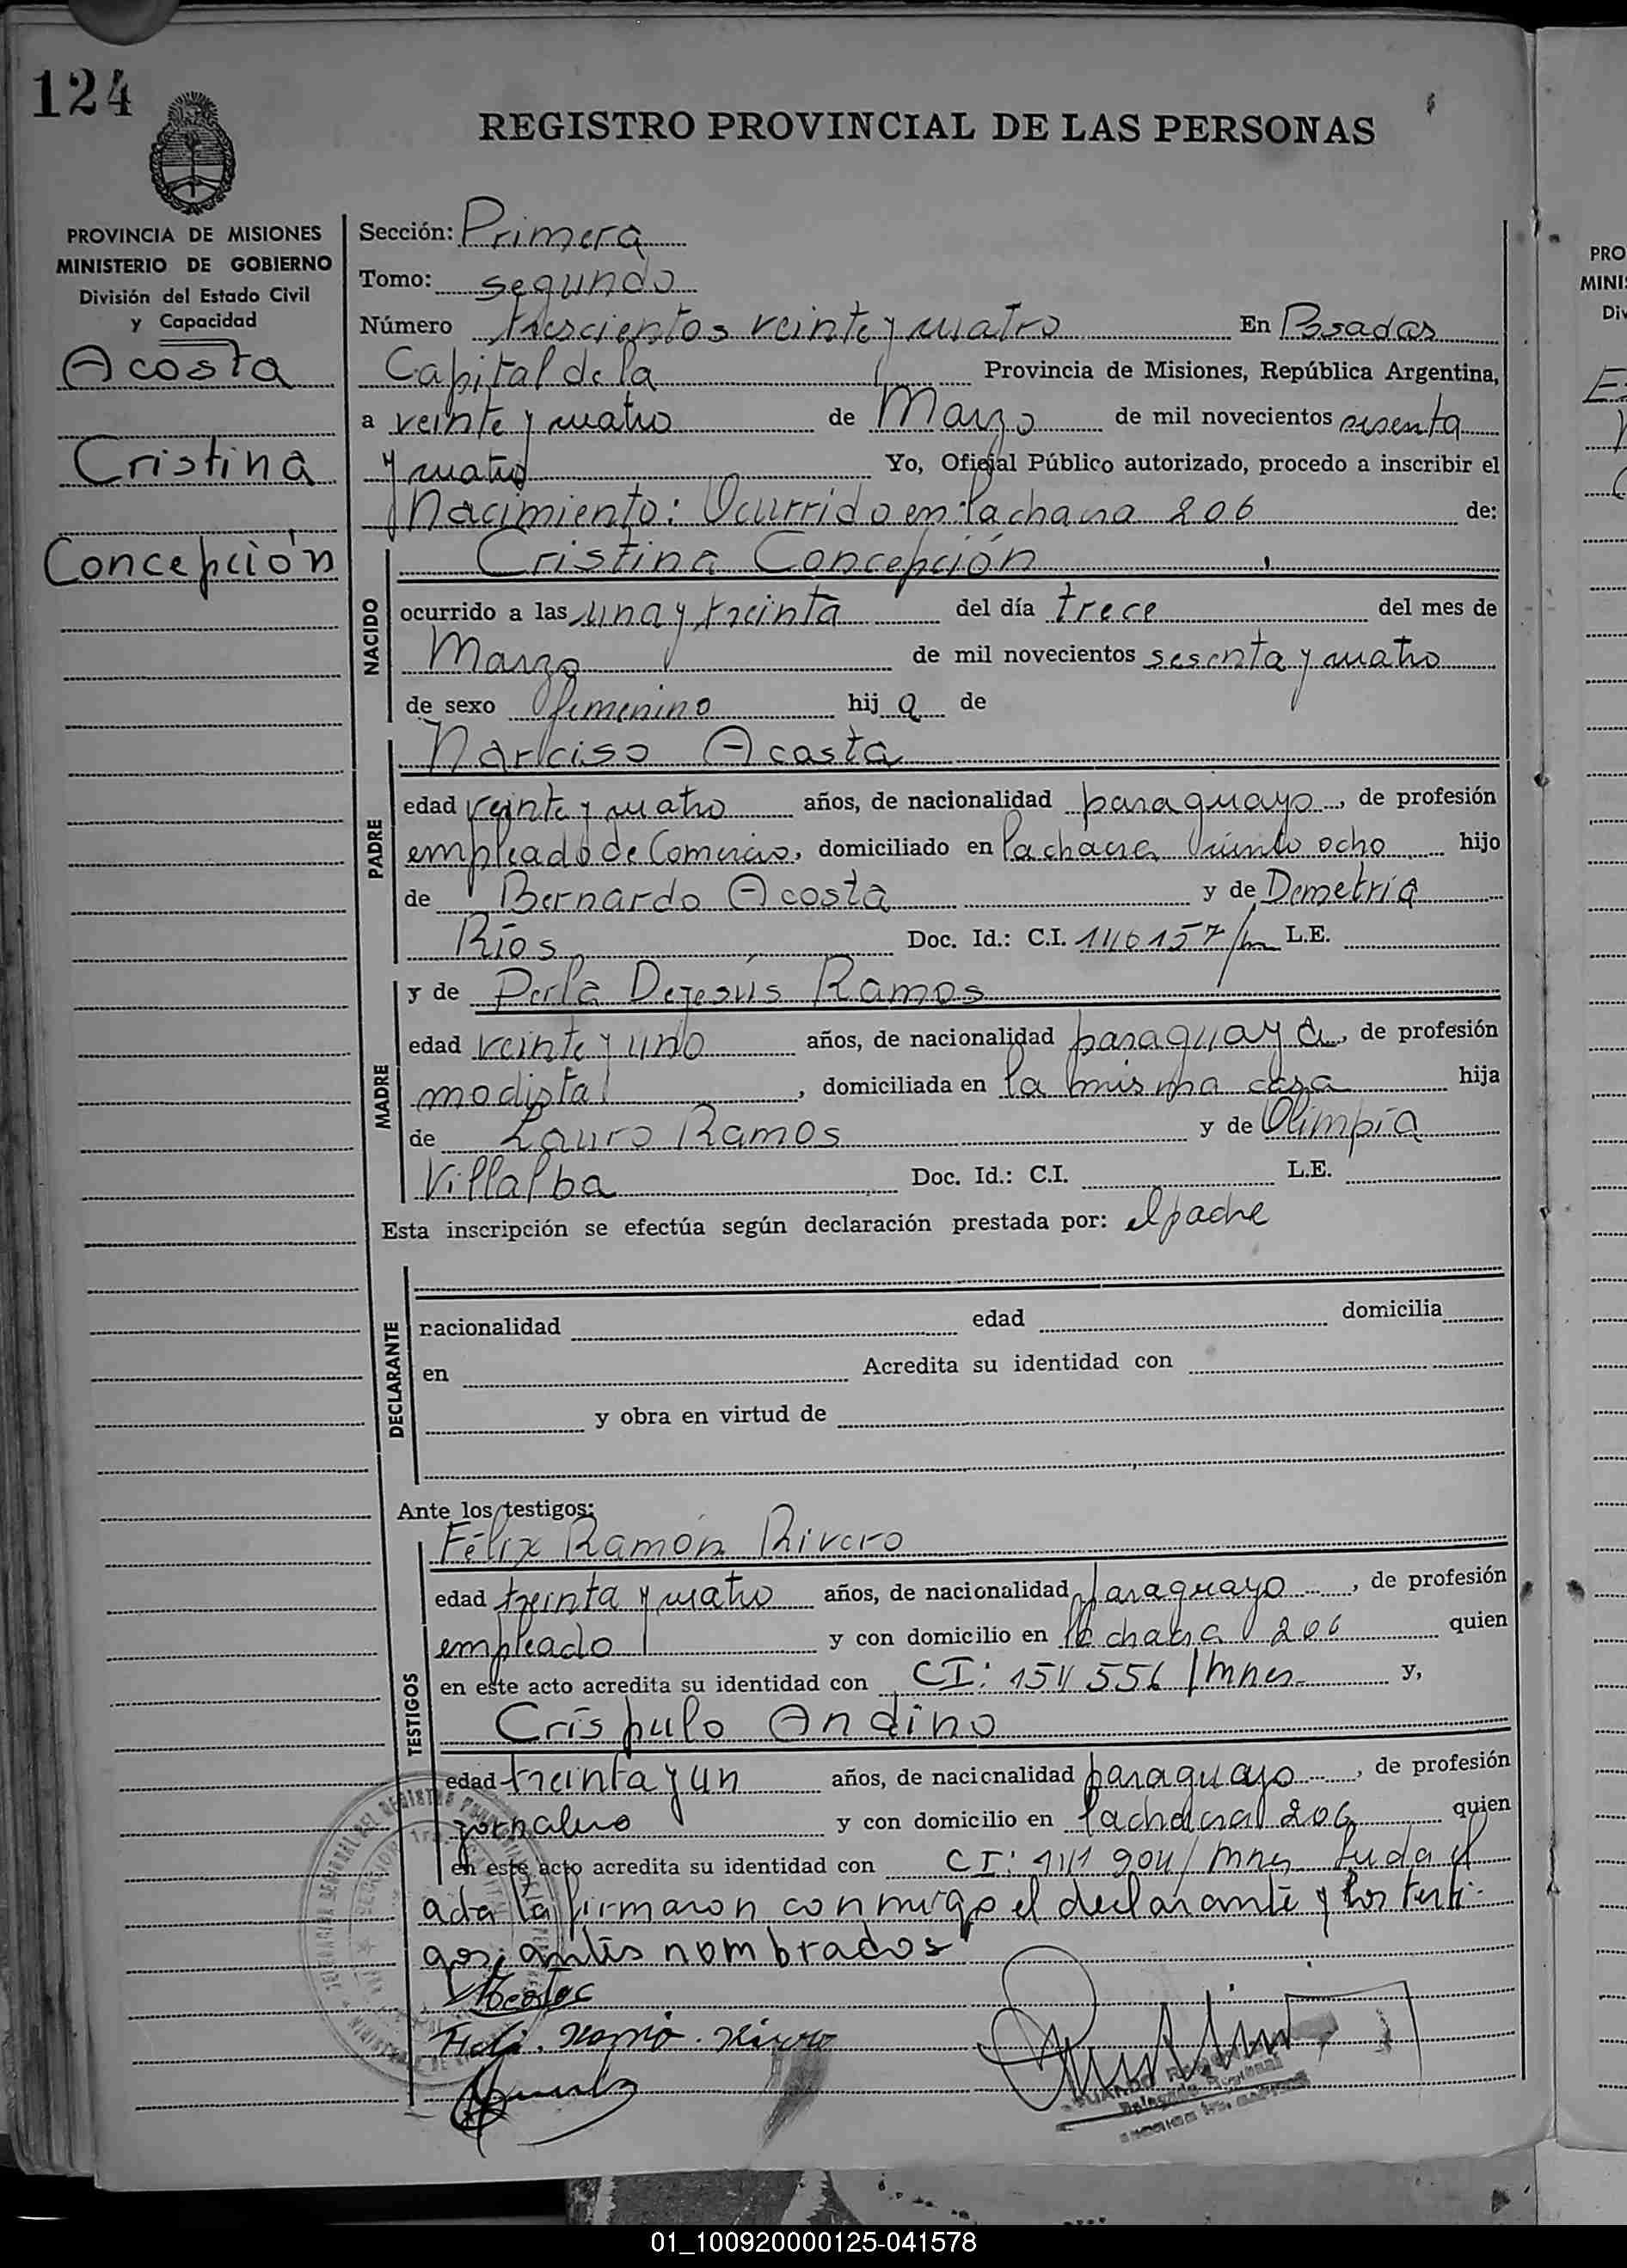 124
REGISTRO PROVINCIAL DE LAS PERSONAS
PROVINCIA DE MISIONES
MINISTERIO DE GOBIERNO
División del Estado Civil
y Capacidad
Acosta
Cristina
Concepción
Sección: Primera
Tomo: segundo
Número trescientos veinte y cuatro En Posadas
Capital de la Provincia de Misiones, República Argentina,
a veinte y cuatro de Marzo de mil novecientos sesenta
y cuatro Yo, Oficial Público autorizado, procedo a inscribir el
Nacimiento: Ocurrido en la chacra 206 de:
Cristina Concepción
NACIDO
ocurrido a las una y treinta del día trece del mes de
Marzo de mil novecientos sesenta y cuatro
de sexo femenino hija de
Narciso Acosta
PADRE
edad veinte y cuatro años, de nacionalidad paraguayo, de profesión
empleado de Comercio, domiciliado en la chacra ocho hijo
de Bernardo Acosta y de Demetria
Ríos Doc. Id.: C.I. 146157/ L.E.
y de Perla Dejesús Ramos
MADRE
edad veinte y uno años, de nacionalidad paraguaya, de profesión
modista, domiciliada en la misma casa hija
de Lauro Ramos y de Olimpia
Villalba Doc. Id.: C.I. L.E.
Esta inscripción se efectúa según declaración prestada por: el padre
DECLARANTE
nacionalidad edad domicilia
en Acredita su identidad con
y obra en virtud de
Ante los testigos:
Félix Ramón Rivero
TESTIGOS
edad treinta y cuatro años, de nacionalidad paraguayo, de profesión
empleado y con domicilio en la chacra 206 quien
en este acto acredita su identidad con CI: 154556/Mnes y,
Críspulo Andino
edad treinta y un años, de nacionalidad paraguayo, de profesión
jornalero y con domicilio en la chacra 206 quien
en este acto acredita su identidad con CI: 141904/Mnes Leída el
acta la firmaron conmigo el declarante y los testi-
gos, antes nombrados
PRO
MINI
Div
01_100920000125-041578